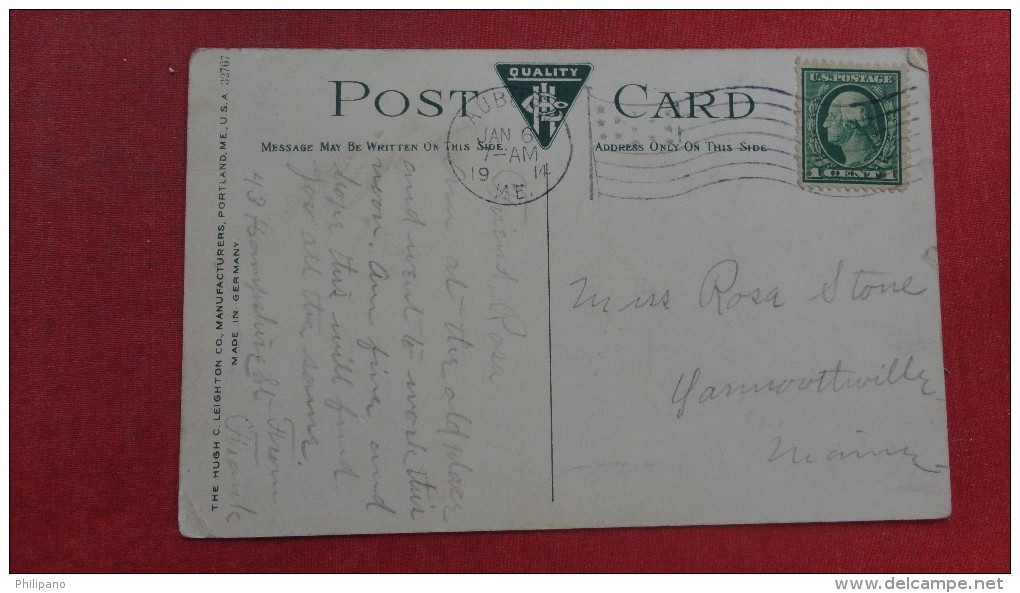 POST CARD
QUALITY
MESSAGE MAY BE WRITTEN ON THIS SIDE
ADDRESS ONLY ON THIS SIDE
AUBURN
JAN 6
7-AM
19 14
ME.
U.S. POSTAGE
1 CENT 1
THE HUGH C. LEIGHTON CO., MANUFACTURERS, PORTLAND, ME., U.S.A. 32767
MADE IN GERMANY.
Friend Rosa
Am at the old place
and went to work this
noon. Am fine and
hope this will find
you all the same.
From
43 Hampshire St Frank
Miss Rosa Stone
Yarmouthville
Maine
Philipano
www.delcampe.net